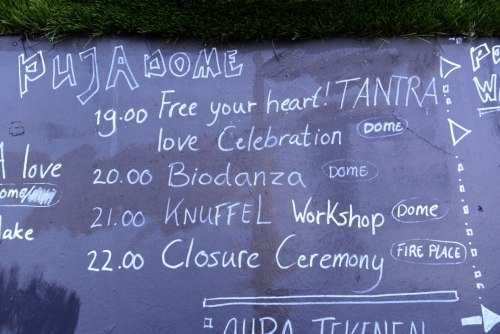 PUJA DOME
19.00 Free your heart! TANTRA
love Celebration DOME
20.00 Biodanza DOME
21.00 KNUFFEL Workshop Dome
22.00 Closure Ceremony FIRE PLACE
love
AURA TEKENEN